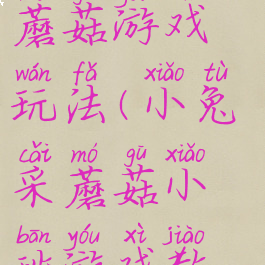 蘑菇游戏
wán fǎ xiǎo tù
玩法(小兔
cǎi mó gū xiǎo
采蘑菇小
bān yóu xì jiào
班游戏教